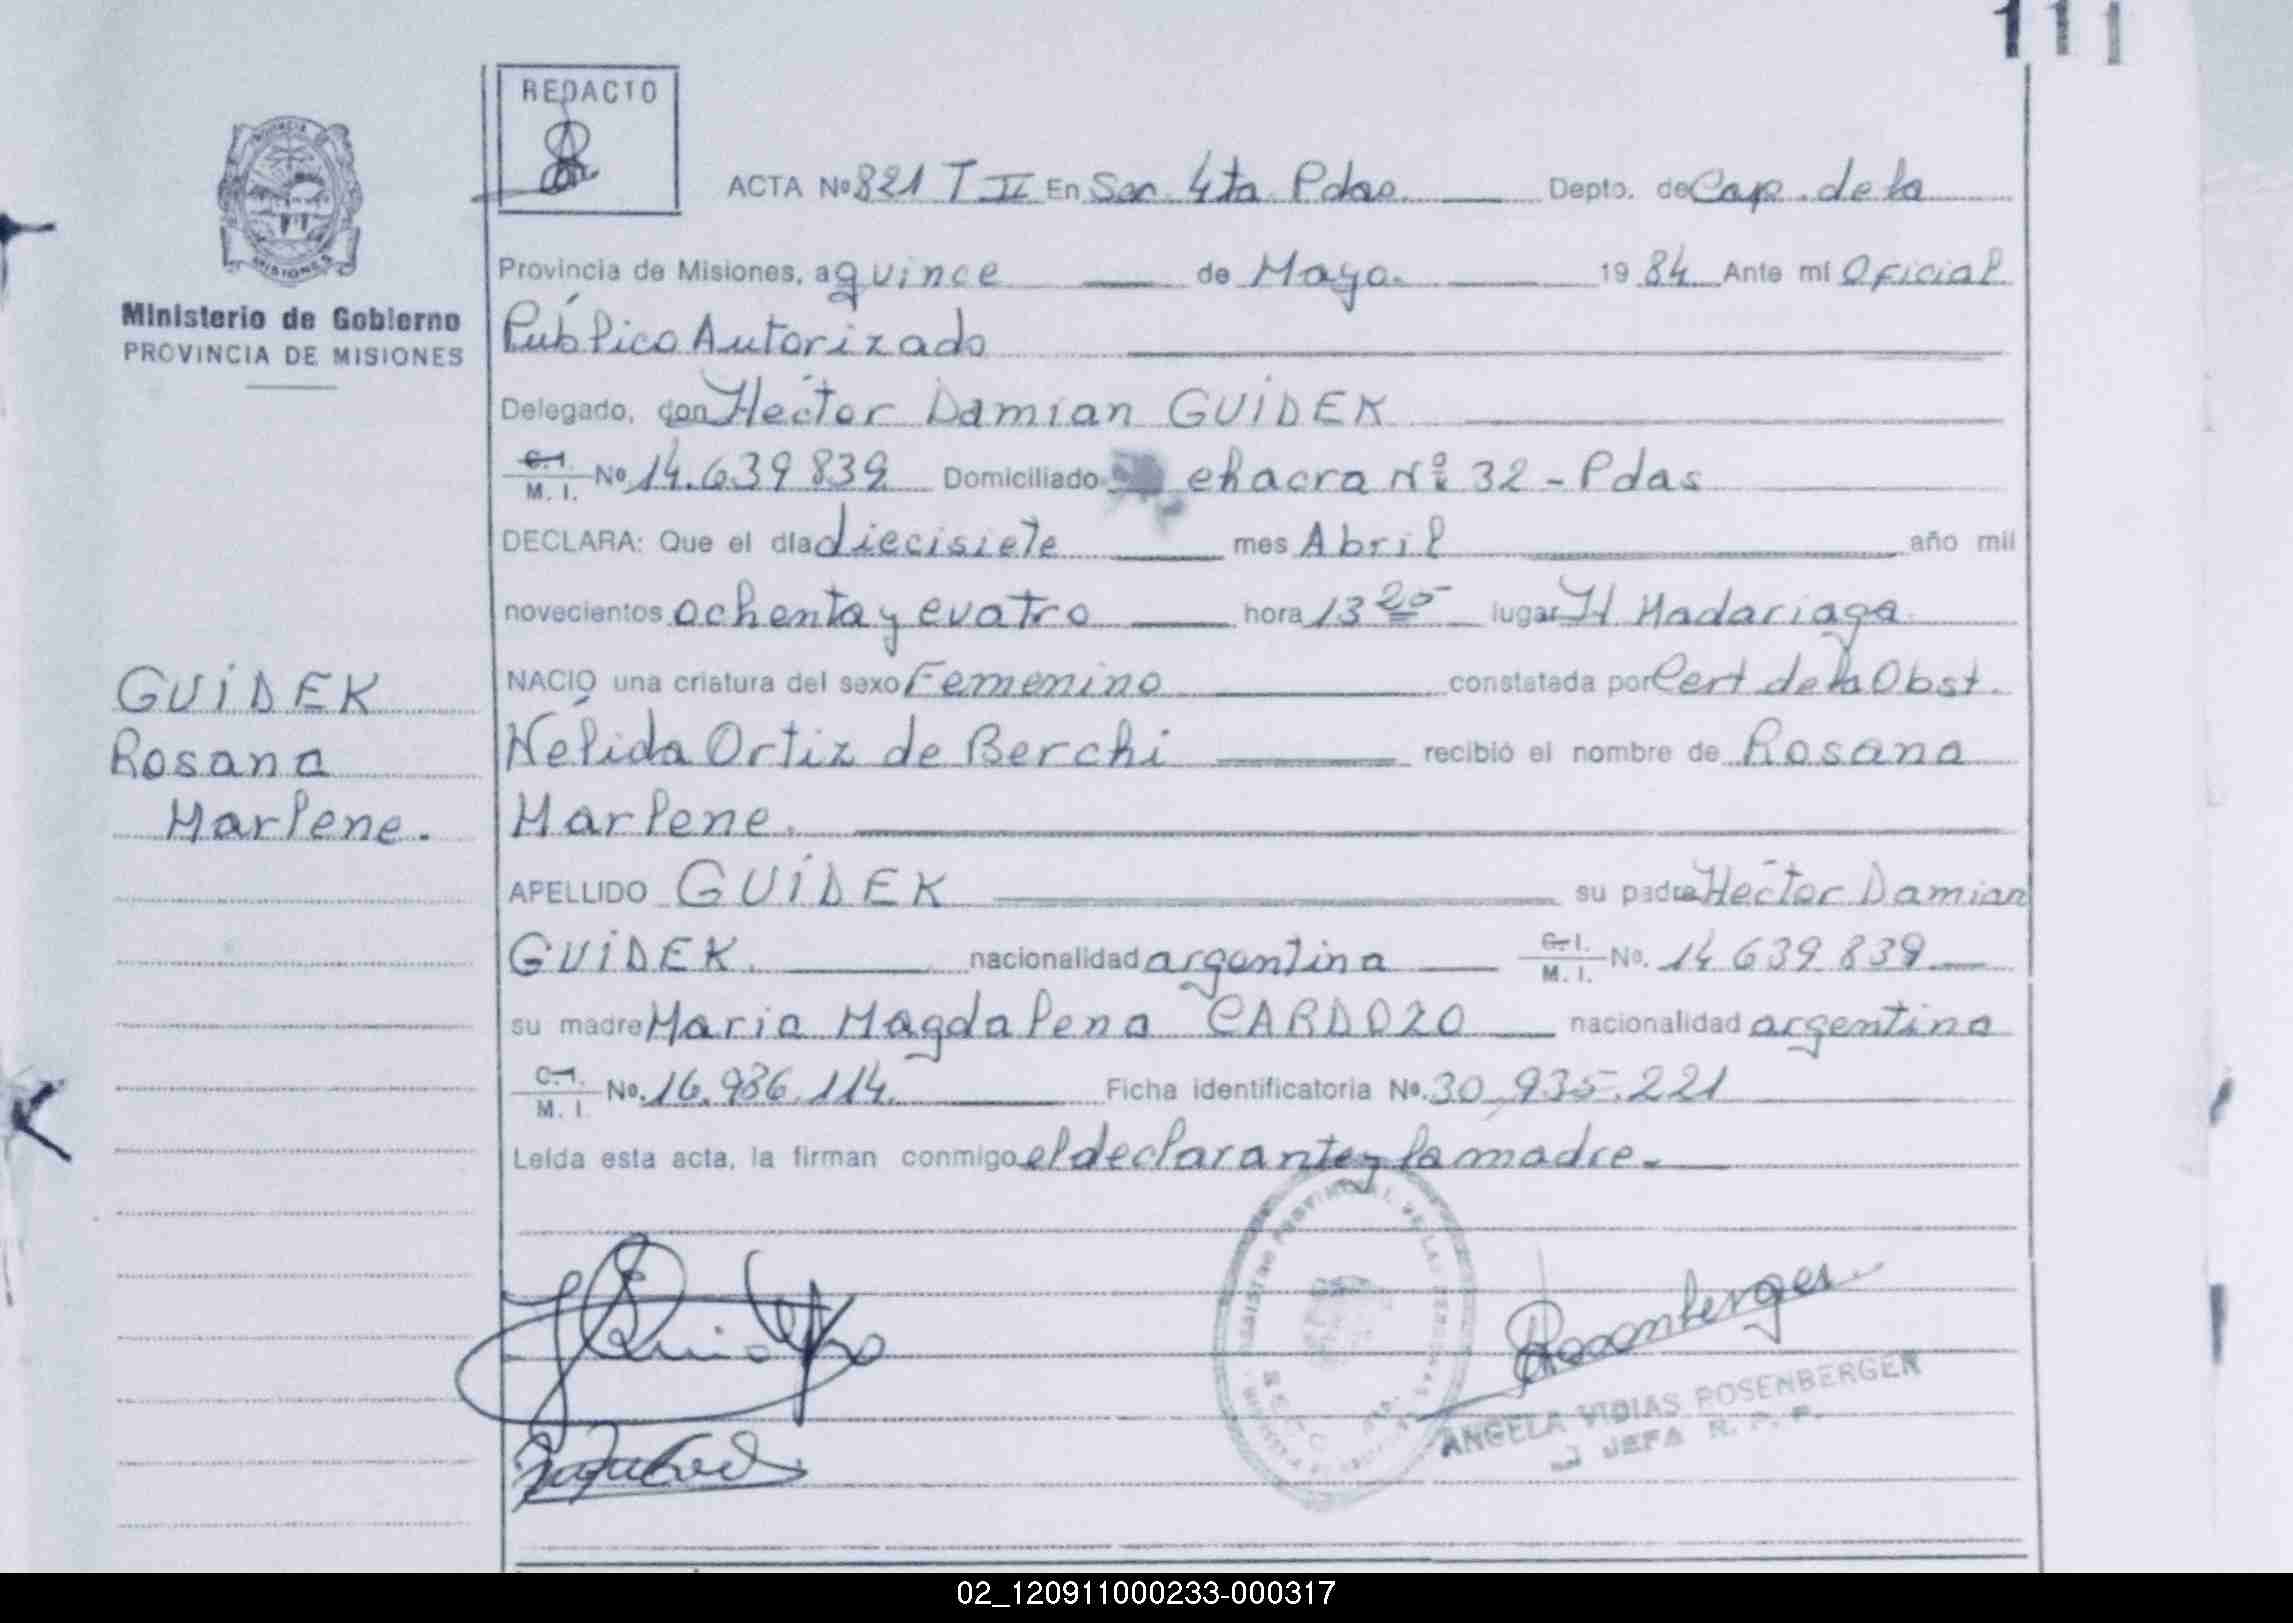 111
REDACTO
ACTA Nº 821 T II En Sec. 4ta. Pdas. Depto. de Cap. de la
Provincia de Misiones, a quince de Mayo. 19 84 Ante mí Oficial
Público Autorizado
Ministerio de Gobierno
PROVINCIA DE MISIONES
Delegado, don Héctor Damian GUIDEK
C.I. M. I. Nº 14.639 839 Domiciliado chacra Nº 32 - Pdas
DECLARA: Que el día diecisiete mes Abril año mil
novecientos ochenta y cuatro hora 13 25 lugar H Madariaga
NACIO una criatura del sexo Femenino constatada por Cert de la Obst.
Nélida Ortiz de Berchi recibió el nombre de Rosana
Marlene.
GUIDEK
Rosana
Marlene.
APELLIDO GUIDEK su padre Héctor Damian
GUIDEK. nacionalidad argentina C.I. M. I. Nº. 14 639 839
su madre Maria Magdalena CARDOZO nacionalidad argentina
C.I. M. I. Nº. 16.986.114. Ficha identificatoria Nº. 30,935.221
Leída esta acta, la firman conmigo el declarante y la madre.
Rosenberger
ANGELA VIDIAS ROSENBERGER
JEFA R. P. P.
02_120911000233-000317